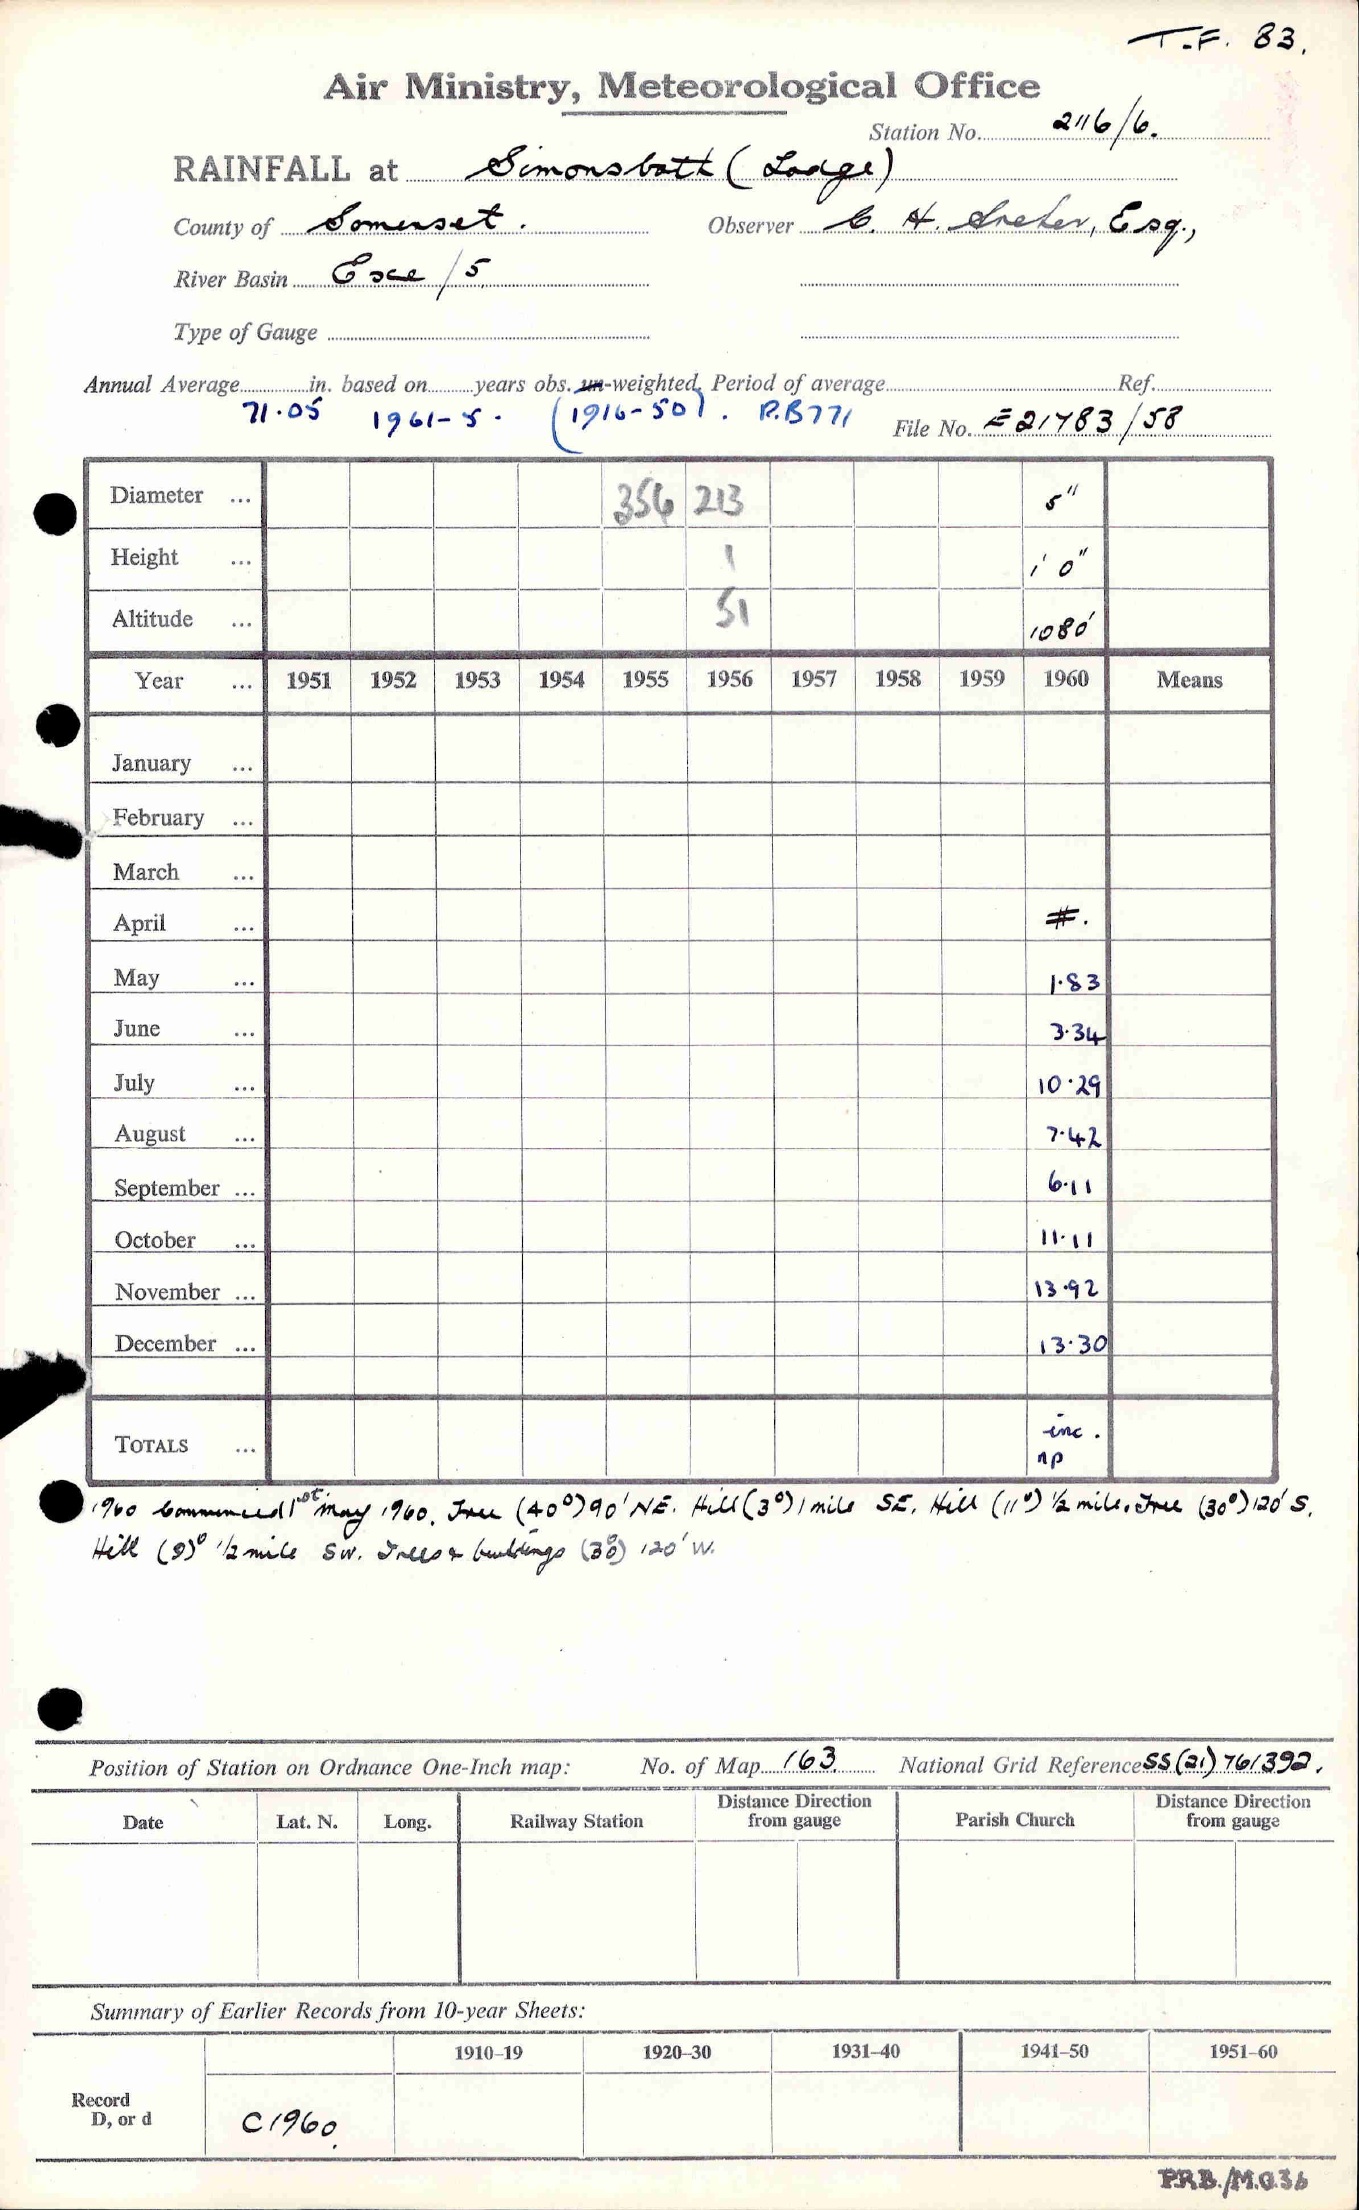 T.F. 83.
Air Ministry, Meteorological Office
Station No. 2116/6.
RAINFALL at Simonsbath (Lodge)
County of Somerset. Observer C. H. Esq.,
River Basin Exe /5
Type of Gauge
Annual Average in. based on years obs. un-weighted. Period of average Ref.
71.05 1961-5. (1916-50). R.B771 File No. E21783/58
Diameter ... 356 213 5"
Height ... 1 1' 0"
Altitude ... 51 1080'
Year ... 1951 1952 1953 1954 1955 1956 1957 1958 1959 1960 Means
January ...
February ...
March ...
April ... #.
May ... 1.83
June ... 3.34
July ... 10.29
August ... 7.42
September ... 6.11
October ... 11.11
November ... 13.92
December ... 13.30
TOTALS ... inc.
np
1960 Commenced 1st May 1960. Tree (40°) 90' NE. Hill (3°) 1 mile SE. Hill (11°) 1/2 mile. Tree (30°) 120' S.
Hill (9)° 1/2 mile SW. Trees & buildings (38°) 120' W.
Position of Station on Ordnance One-Inch map: No. of Map 163 National Grid Reference SS(21) 761392.
Date Lat. N. Long. Railway Station Distance Direction from gauge Parish Church Distance Direction from gauge
Summary of Earlier Records from 10-year Sheets:
1910–19 1920–30 1931–40 1941–50 1951–60
Record
D, or d C1960.
P.R.B./M.O.36